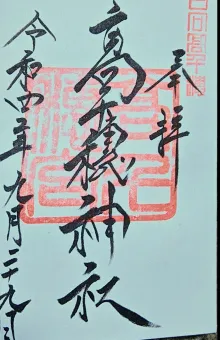 奉拝
高千穂神社
令和四年九月二十九日